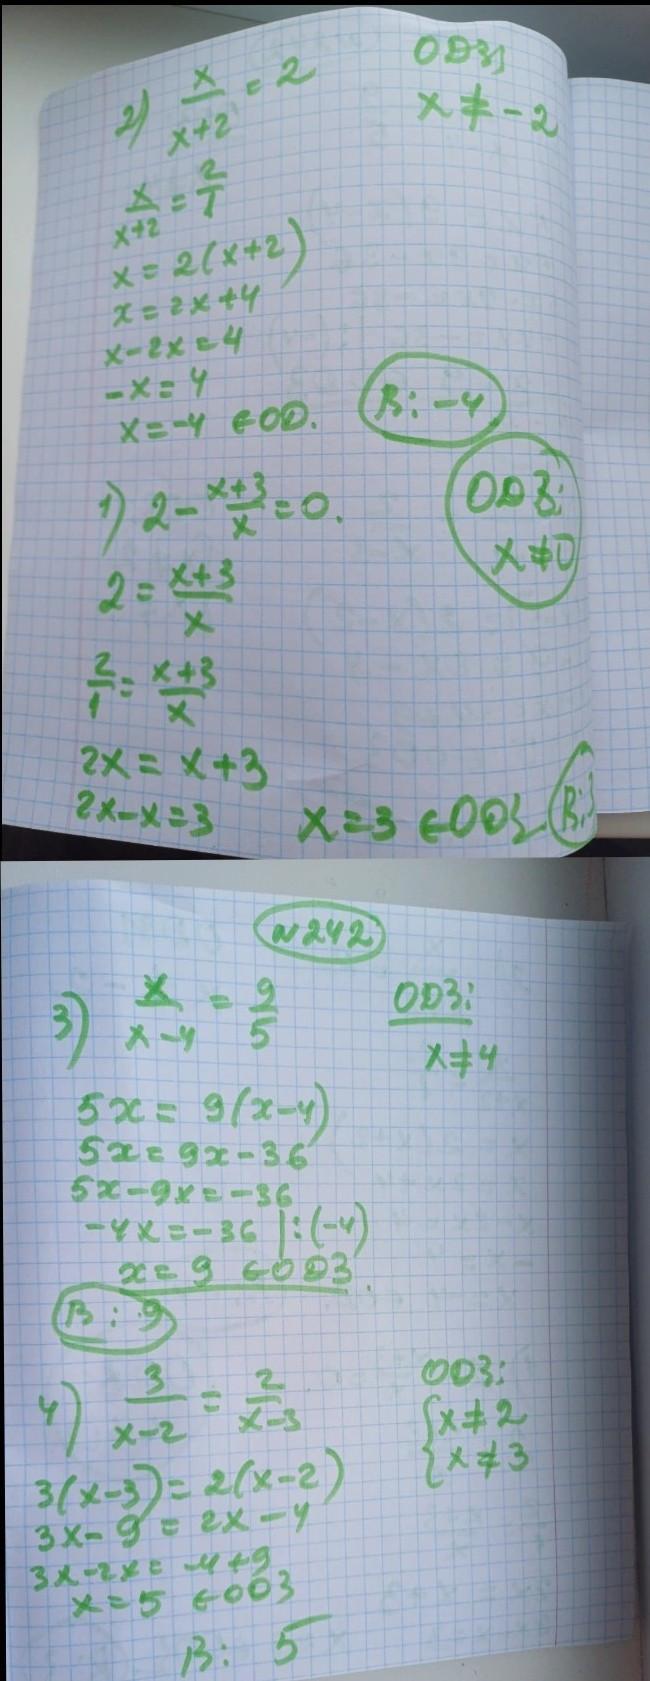 2) x/(x+2) = 2 ОДЗ:
x ≠ -2
x/(x+2) = 2/1
x = 2(x+2)
x = 2x+4
x-2x=4
-x=4
x=-4 ∈ОД. В: -4
1) 2 - (x+3)/x = 0. ОДЗ:
x≠0
2 = (x+3)/x
2/1 = (x+3)/x
2x = x+3
2x-x=3 x=3 ∈ОДЗ В:3
№242
3) x/(x-4) = 9/5 ОДЗ:
x≠4
5x = 9(x-4)
5x = 9x-36
5x-9x=-36
-4x=-36 |:(-4)
x=9 ∈ОДЗ.
В: 9
4) 3/(x-2) = 2/(x-3) ОДЗ:
{x≠2
x≠3
3(x-3) = 2(x-2)
3x-9 = 2x-4
3x-2x=-4+9
x=5 ∈ОДЗ
В: 5